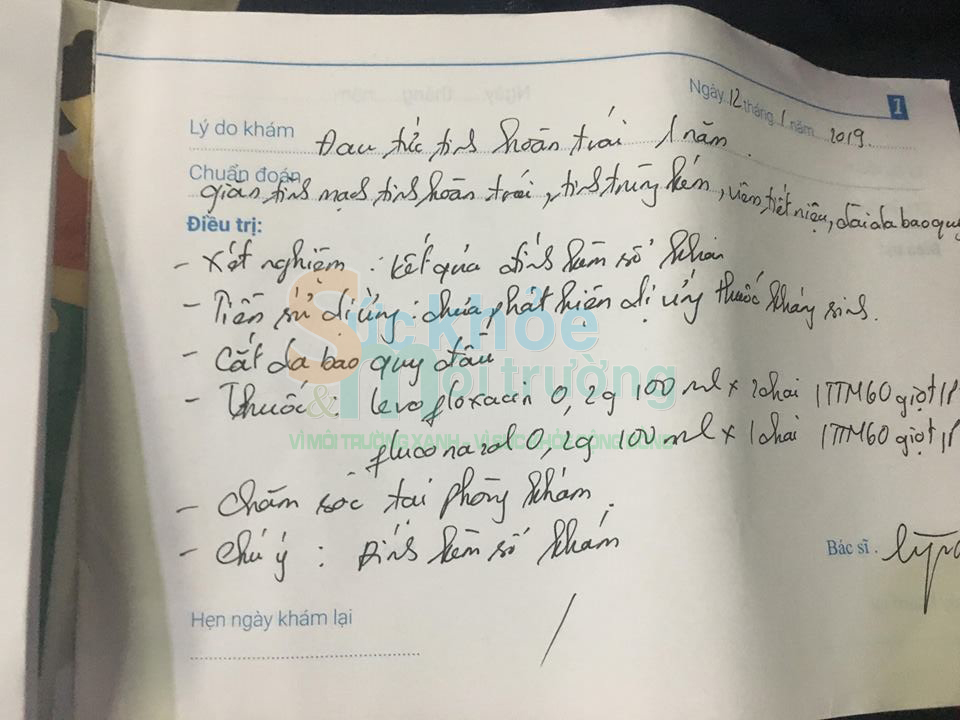 1
Ngày 12 tháng 1 năm 2019.
Lý do khám Đau tức tinh hoàn trái 1 năm.
Chuẩn đoán giãn tĩnh mạch tinh hoàn trái, tinh trùng kém, viêm tiết niệu, dài da bao quy
Điều trị:
- Xét nghiệm : kết quả đính kèm sổ khám
- Tiền sử dị ứng : chưa phát hiện dị ứng thuốc kháng sinh.
- Cắt da bao quy đầu
- Thuốc : levofloxacin 0,2g 100ml x 2chai 1TTM60 giọt/P
- fluconazol 0,2g 100ml x 1chai 1TTM60 giọt/P
- Chăm sóc tại phòng khám.
- Chú ý : Đính kèm sổ khám
Bác sĩ.
Hẹn ngày khám lại
Sức khỏe
& Môi trường
VÌ MÔI TRƯỜNG XANH - VÌ SỨC KHỎE CỘNG ĐỒNG